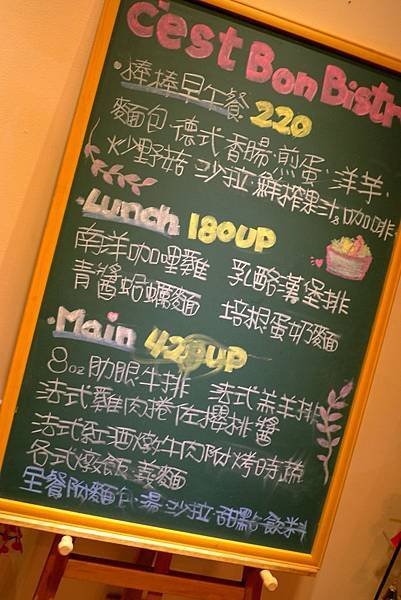 c'est Bon Bistr
·棒棒早午餐 220
麵包·德式香腸·煎蛋·洋芋·
炒野菇·沙拉·鮮搾果汁or咖啡
·Lunch 180UP
南洋咖哩雞 乳酪漢堡排
青醬蛤蠣麵 培根蛋奶麵
·Main 420UP
8oz肋眼牛排 法式羔羊排
法式雞肉捲佐櫻桃醬
法式紅酒燉牛肉附烤時蔬
各式燉飯·義麵
全餐附麵包·湯·沙拉·甜點·飲料